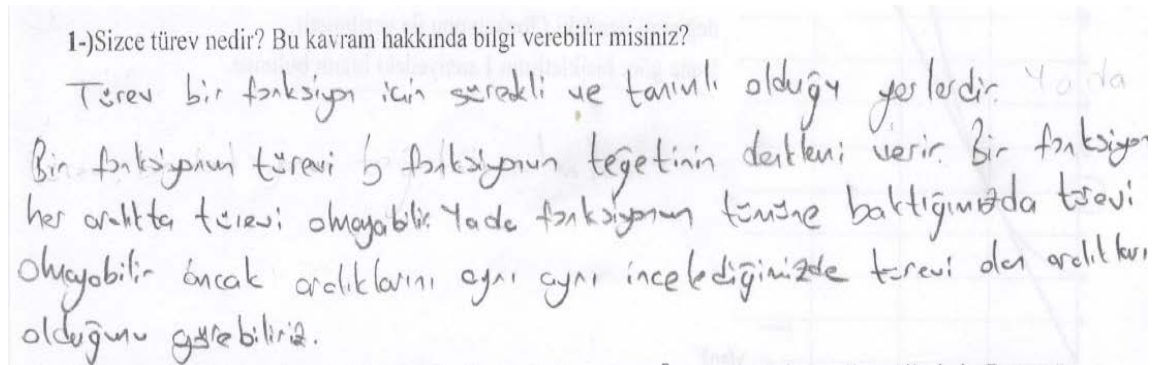 1-)Sizce türev nedir? Bu kavram hakkında bilgi verebilir misiniz?
Türev bir fonksiyon için sürekli ve tanımlı olduğu yerlerdir. Ya da
Bir fonksiyonun türevi o fonksiyonun teğetinin denklemi verir. Bir fonksiyon
her aralıkta türevi olmayabilir. Yada fonksiyonun tümüne baktığımızda türevi
olmayabilir ancak aralıklarını ayrı ayrı incelediğimizde türevi olan aralıkları
olduğunu görebiliriz.